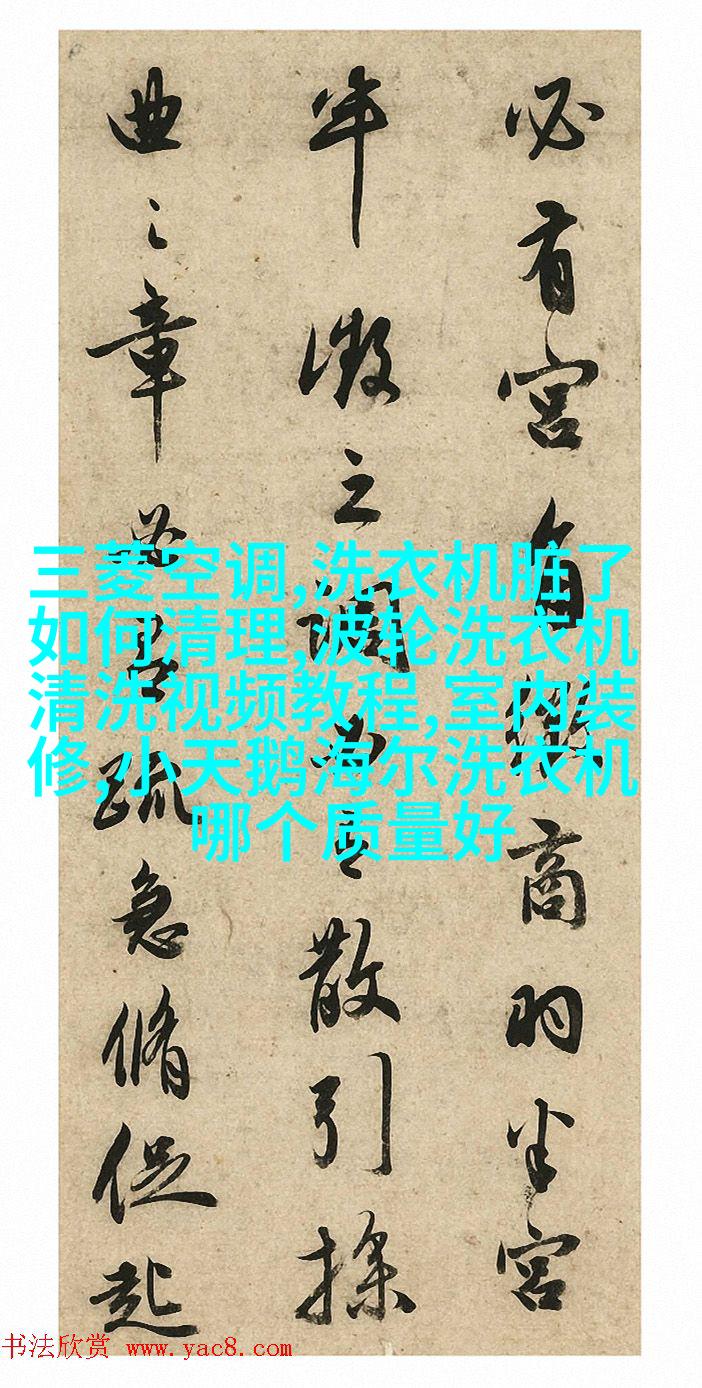 必有宮角徵商羽半宮
半徵之調必有散引操
曲之章必有疏急脩促起
三菱空调,洗衣机脏了
如何清理,波轮洗衣机
清洗视频教程,室内装
修,小天鹅海尔洗衣机
哪个质量好
书法欣赏 www.yac8.com